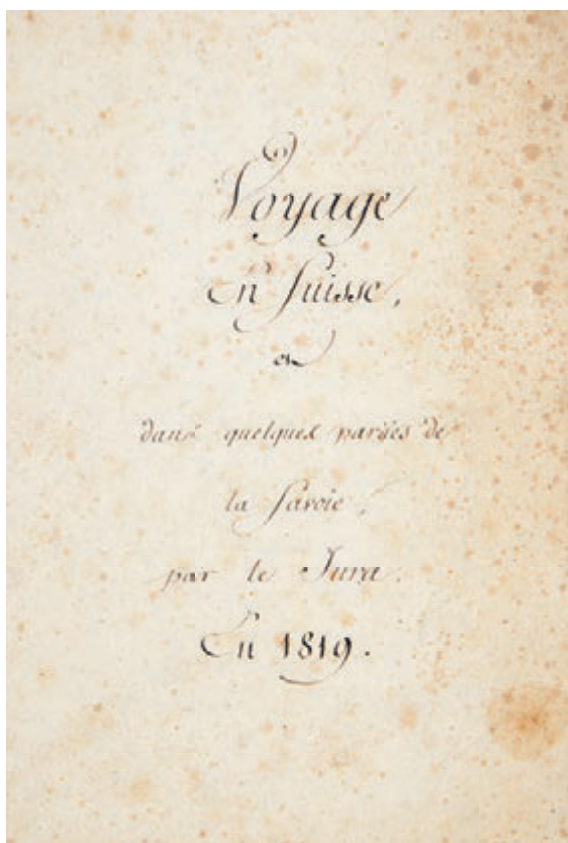 Voyage
En Suisse,
et
dans quelques parties de
la Savoie,
par le Jura.
En 1819.